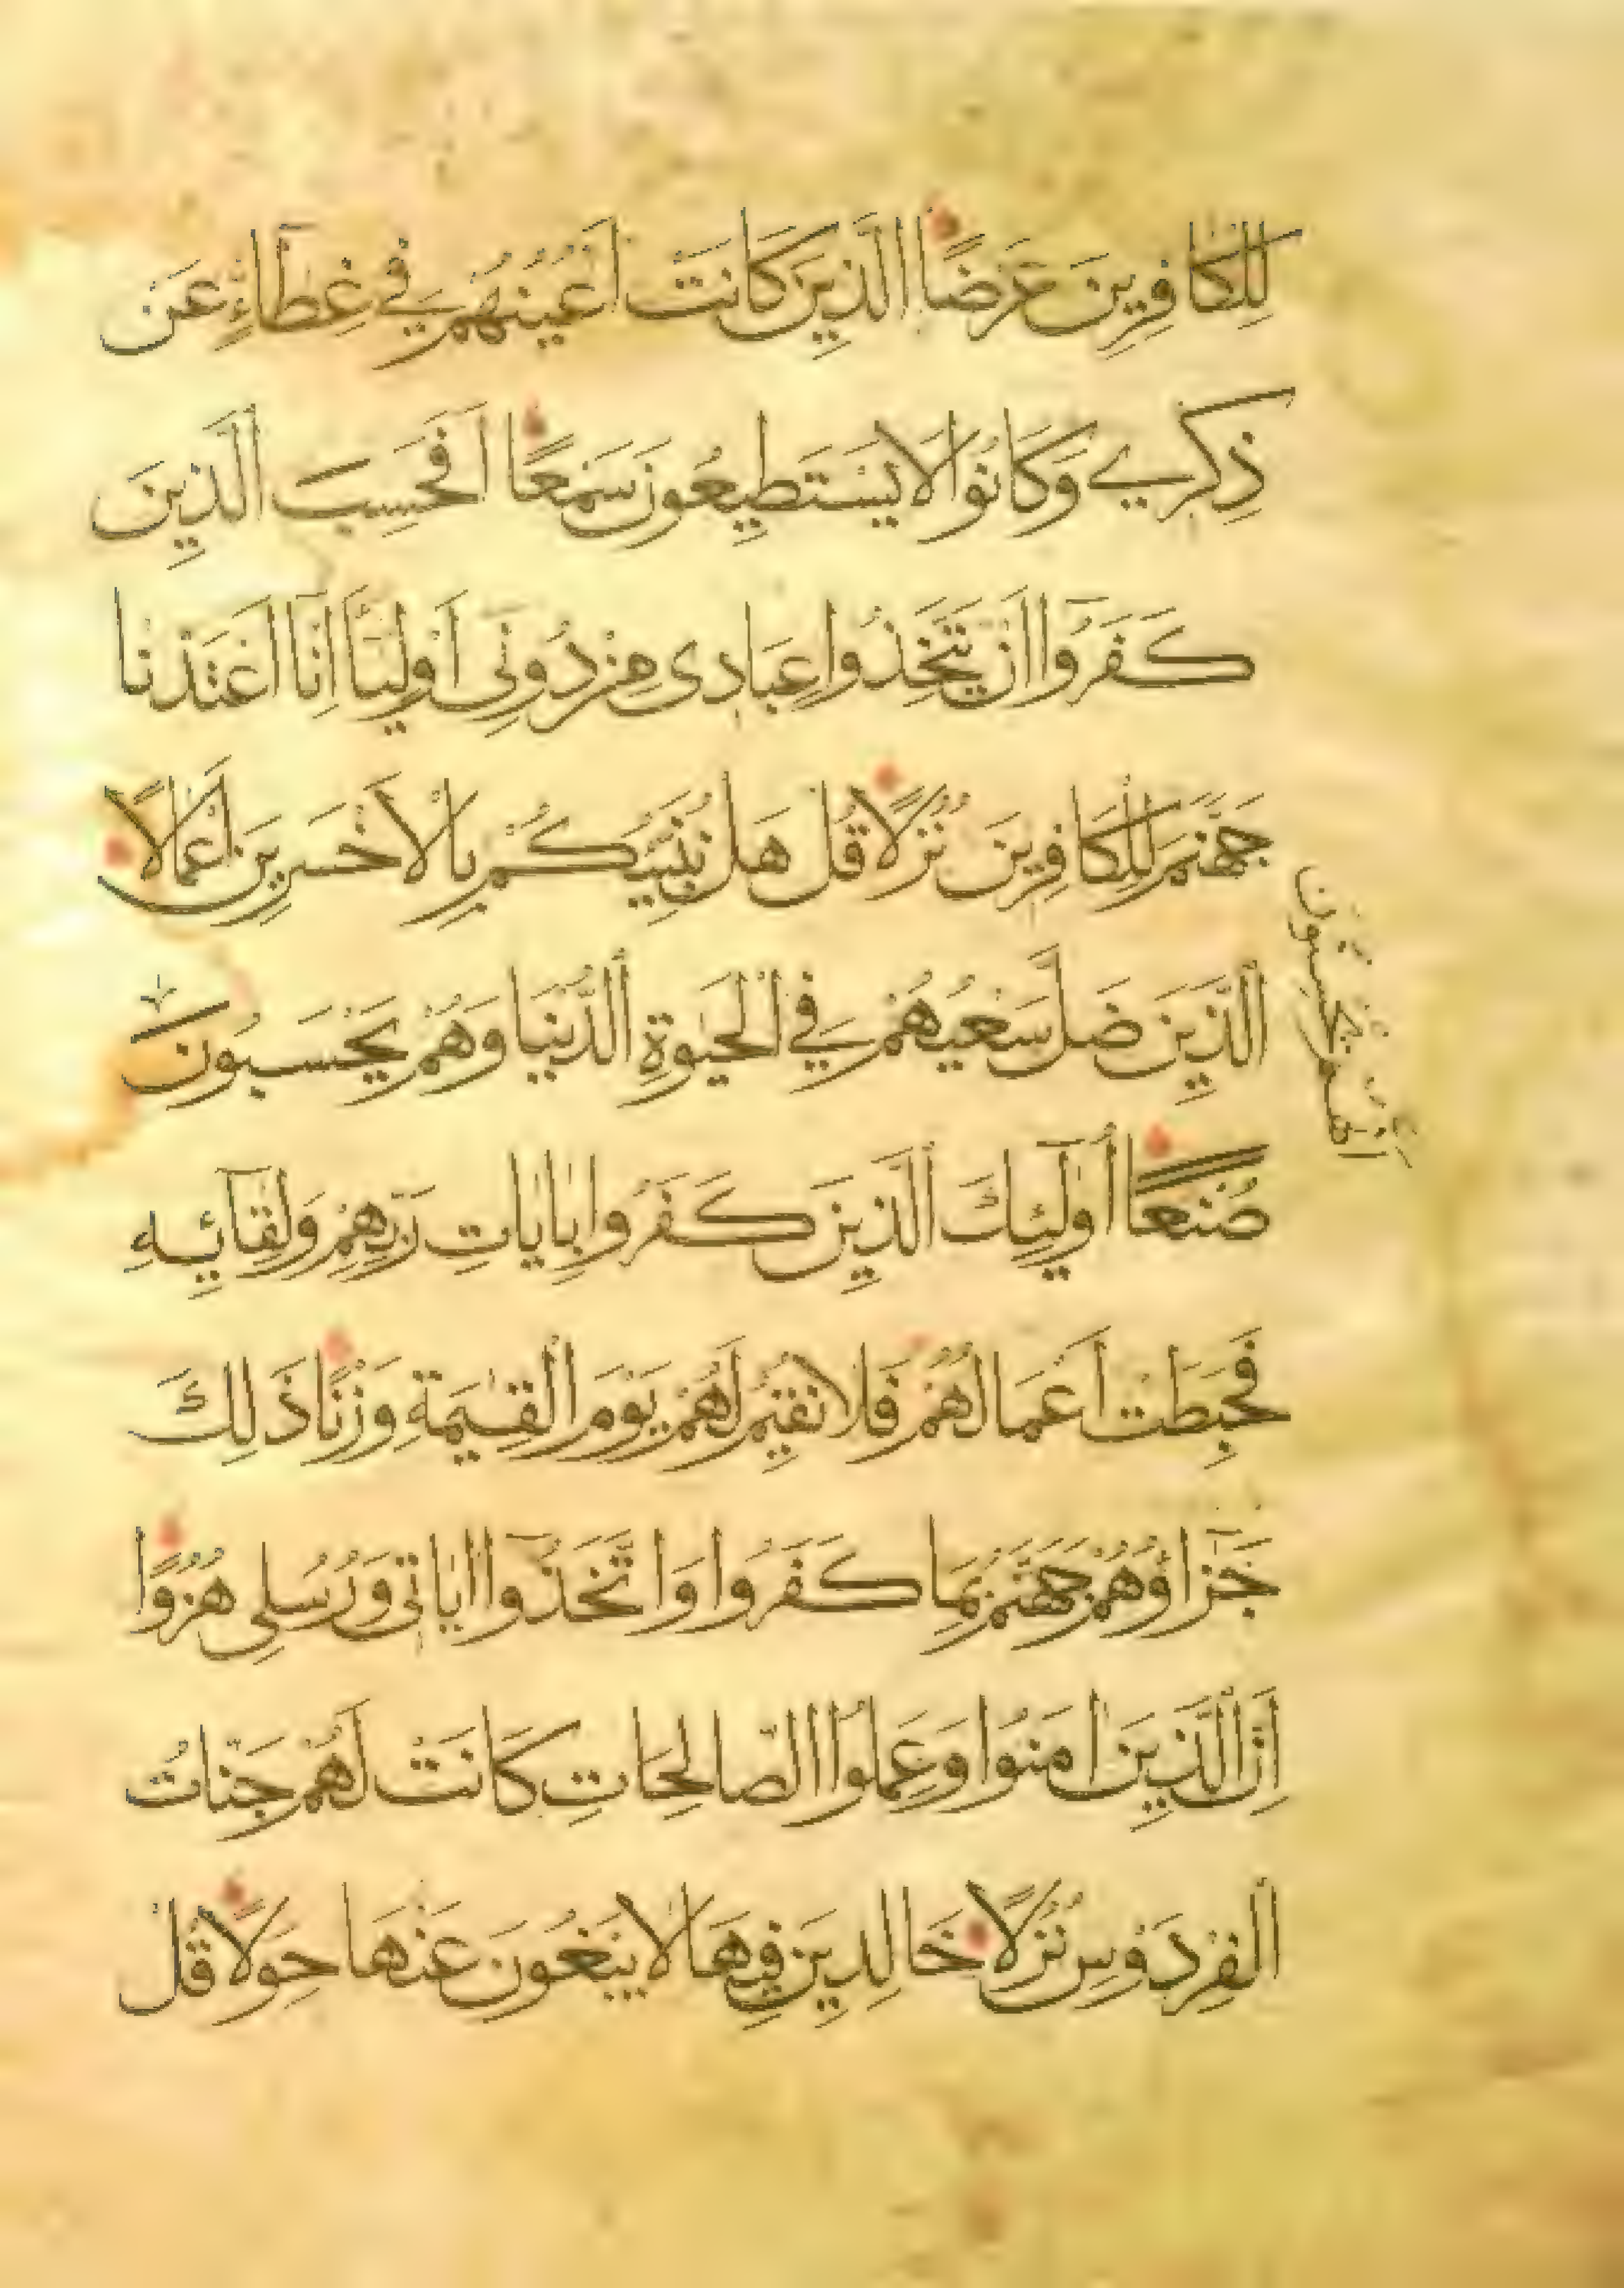 لِلْكَافِرِينَ عَرْضًا الَّذِينَ كَانَتْ اَعْيُنُهُمْ فِي غِطَاءٍ عَنْ
ذِكْرِي وَكَانُوا لَا يَسْتَطِيعُونَ سَمْعًا اَفَحَسِبَ الَّذِينَ
كَفَرُوا اَنْ يَتَّخِذُوا عِبَادِى مِنْ دُونِى اَوْلِيَآ اِنَّا اَعْتَدْنَا
جَهَنَّمَ لِلْكَافِرِينَ نُزُلًا قُلْ هَلْ نُنَبِّيُكُمْ بِالْاَخْسَرِينَ اَعْمَالًا
الَّذِينَ ضَلَّ سَعْيُهُمْ فِي الْحَيٰوةِ الدُّنْيَا وَهُمْ يَحْسَبُونَ
اَنَّهُمْ يُحْسِنُونَ
صُنْعًا اُولٰٓئِكَ الَّذِينَ كَفَرُوا بِاٰيَاتِ رَبِّهِمْ وَلِقَآئِهِ
فَحَبِطَتْ اَعْمَالُهُمْ فَلَا نُقِيمُ لَهُمْ يَوْمَ الْقِيٰمَةِ وَزْنًا ذَلِكَ
جَزَآؤُهُمْ جَهَنَّمُ بِمَا كَفَرُوا وَاتَّخَذُوا اٰيَاتِى وَرُسُلِى هُزُوًا
اِنَّ الَّذِينَ اٰمَنُوا وَعَمِلُوا الصَّالِحَاتِ كَانَتْ لَهُمْ جَنَّاتُ
الْفِرْدَوْسِ نُزُلًا خَالِدِينَ فِيهَا لَا يَبْغُونَ عَنْهَا حِوَلًا قُلْ